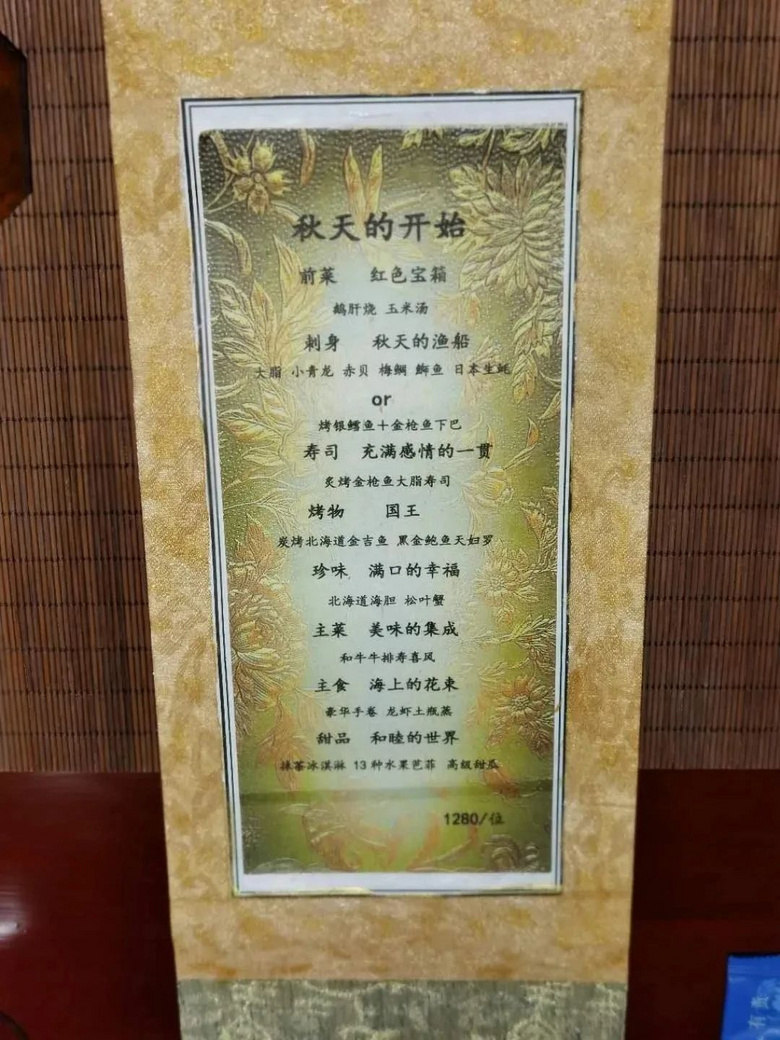 秋天的开始
前菜 红色宝箱
鹅肝烧 玉米汤
刺身 秋天的渔船
大脂 小青龙 赤贝 梅鲷 鰤鱼 日本生蚝
or
烤银鳕鱼＋金枪鱼下巴
寿司 充满感情的一贯
炙烤金枪鱼大脂寿司
烤物 国王
炭烤北海道金吉鱼 黑金鲍鱼天妇罗
珍味 满口的幸福
北海道海胆 松叶蟹
主菜 美味的集成
和牛牛排寿喜风
主食 海上的花束
豪华手卷 龙虾土瓶蒸
甜品 和睦的世界
抹茶冰淇淋 13种水果芭菲 高级甜瓜
1280/位
有贵